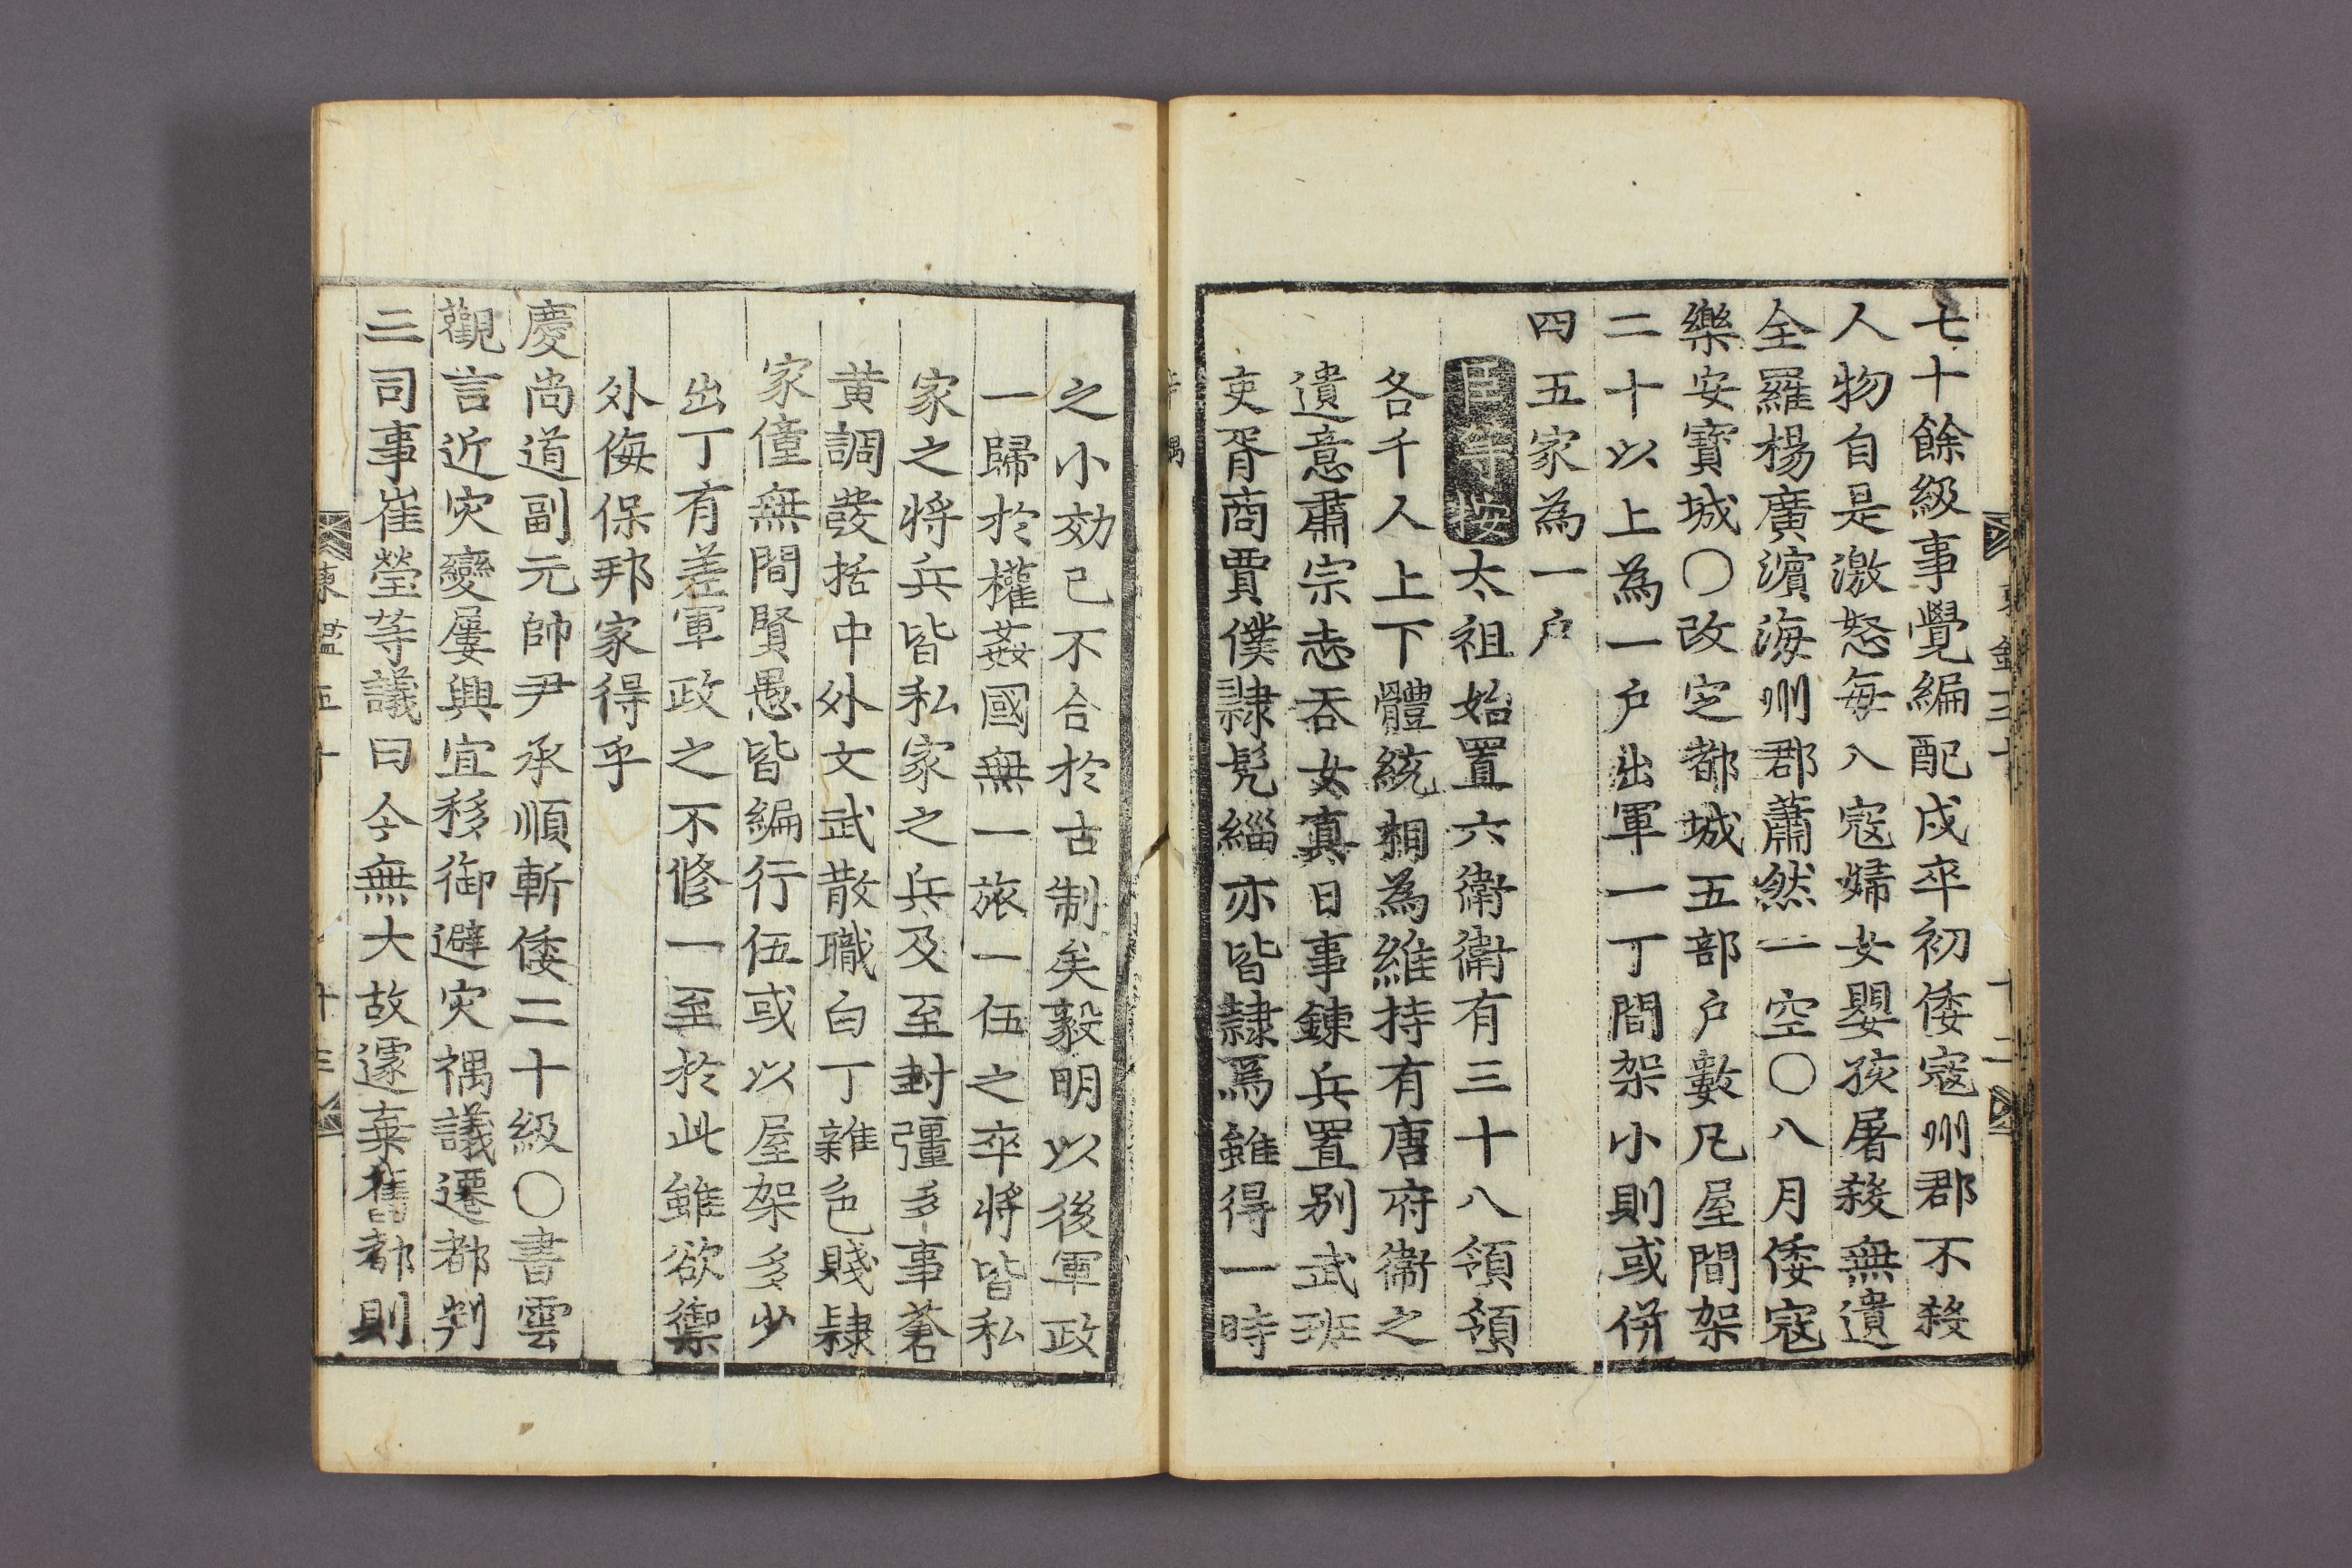 七十餘級事覺編配戍卒初倭寇州郡不殺
人物自是激怒每入寇婦女嬰孩屠殺無遺
全羅楊廣濱海州郡蕭然一空○八月倭寇
樂安寶城○改定都城五部戶數凡屋間架
二十以上為一戶出軍一丁間架小則或併
四五家為一戶
臣等按太祖始置六衛衛有三十八領領
各千人上下體統相為維持有唐府衛之
遺意肅宗志吞女真日事鍊兵置別武班
吏胥商賈僕隷髠緇亦皆隷焉雖得一時
之小効已不合於古制矣毅明以後軍政
一歸於權姦國無一旅一伍之卒將皆私
家之將兵皆私家之兵及至封彊多事蒼
黃調發括中外文武散職白丁雜色賤隷
家僮無間賢愚皆編行伍或以屋架多少
出丁有差軍政之不修一至於此雖欲禦
外侮保邦家得乎
慶尚道副元帥尹承順斬倭二十級○書雲
觀言近灾變屢興宜移御避灾禑議遷都判
三司事崔瑩等議曰今無大故遽棄舊都則